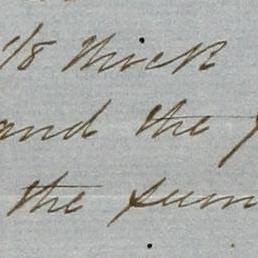 1/8 thick
and the
the sum